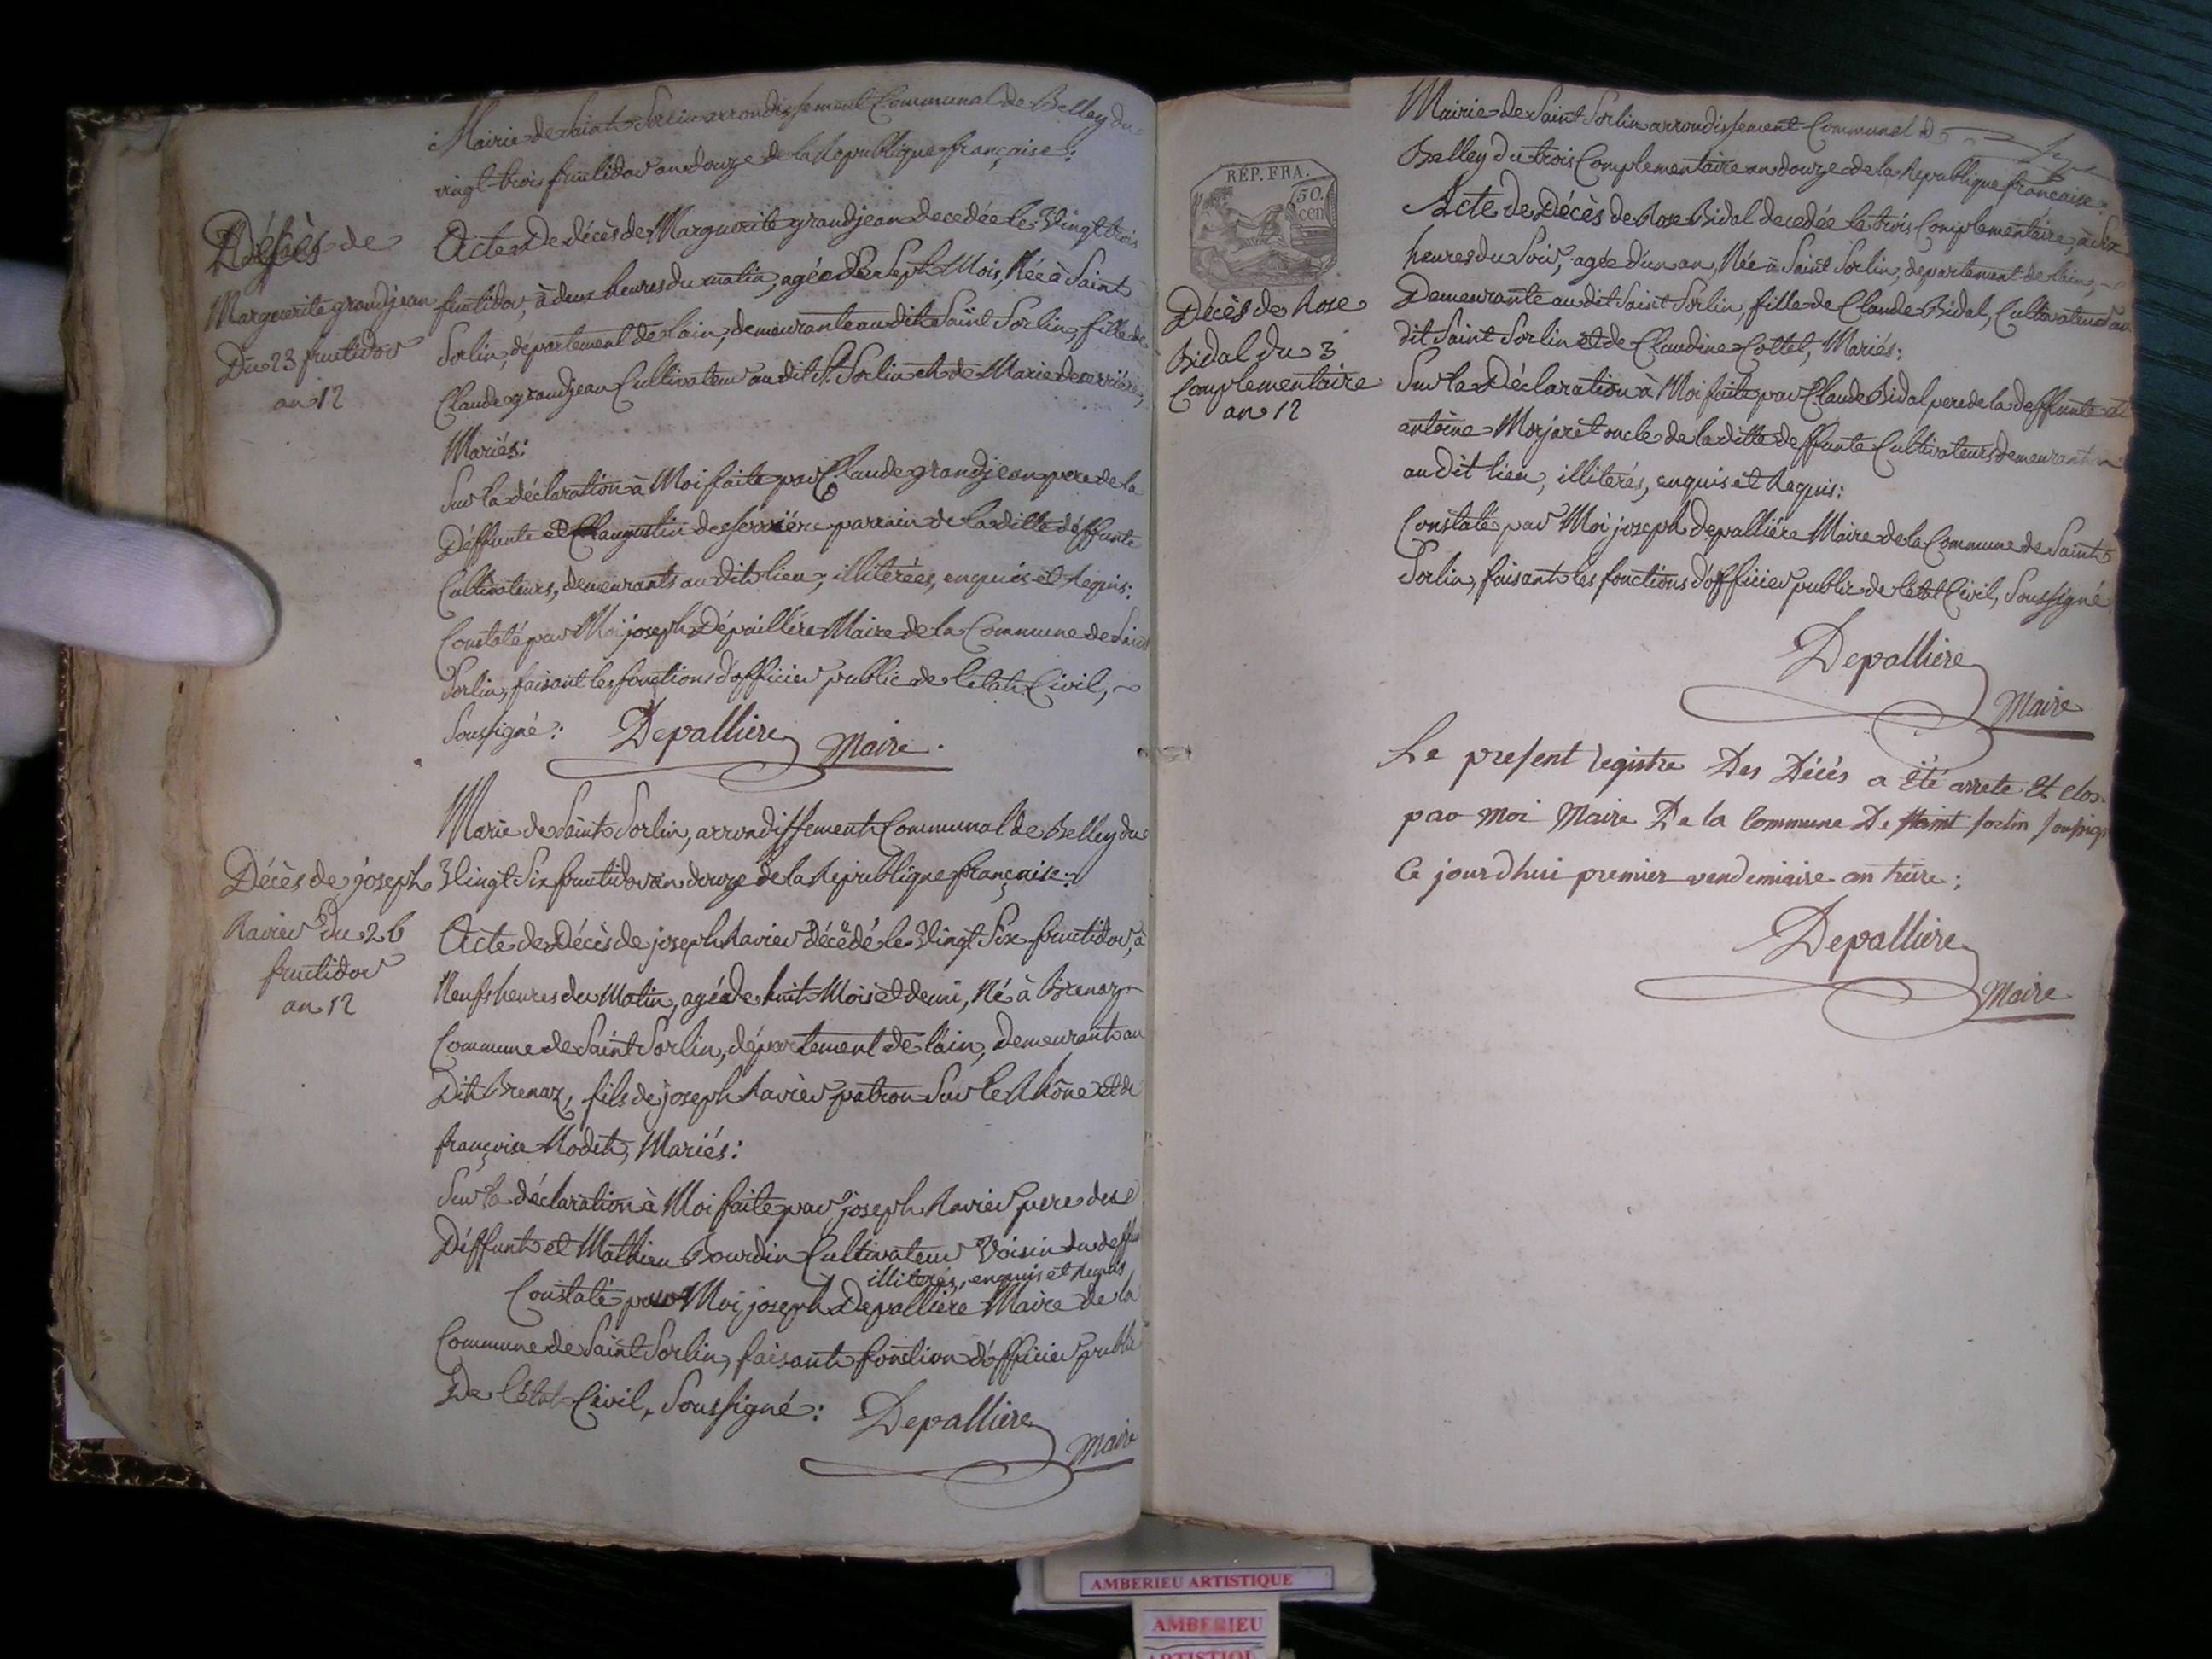 Mairie de Saint Sorlin arrondissement Communal de Belley du
vingt trois fructidor an douze de la Republique française:
Décès de
Marguerite grandjean
Du 23 fructidor
an 12
Acte de décès de Marguerite grandjean decedée le Vingt trois
fructidor, à deux heures du matin, agée de Sept Mois, Née à Saint
Sorlin, département de lain, demeurante au dit Saint Sorlin, fille de
Claude grandjean Cultivateur au dit St. Sorlin et de Marie
Mariés:
Sur la déclaration à Moi faite par Claude grandjean pere de la
Déffunte et augustin desferrière parrain de la ditte déffunte
Cultivateurs, demeurants au dit lieu, illiterées, enquis et Requis:
Constaté par Moi joseph Dépaillière Maire de la Commune de Saint
Sorlin, faisant les fonctions d'officier public de l'etat Civil,
Soussigné: Depalliere Maire.
Marie de Saint Sorlin, arrondissement Communal de Belley du
Vingt Six fructidor an douze de la Republique française:
Décès de joseph
Ravier du 26
fructidor
an 12
Acte de Décès de joseph Ravier décédé le Vingt Six fructidor, à
Neufs heures du Matin, agé de huit Mois et demi, Né à Brenaz
Commune de Saint Sorlin, département de l'ain, Demeurant au
Dit Brenaz, fils de joseph Ravier patron Sur le Rhône et de
françoise Rodet, Mariés:
Sur la déclaration à Moi faite par joseph Ravier pere du
Déffunt et Mathieu Bourdin Cultivateur Voisin du deffu
illiterés, enquis et Requis
Constaté par Moi joseph Depallière Maire de la
Commune de Saint Sorlin, faisant fonction d'officier public
De l'état Civil, Soussigné: Depalliere
Maire
RÉP. FRA.
50.
cen
Mairie de Saint Sorlin arrondissement Communal de
Belley du trois Complementaire an douze de la Republique francaise:
Décès de Rose
Bidal du 3
Complementaire
an 12
Acte de Décès de Rose Bidal decedée le trois Complementaire, à Six
heures du Soir, agée d'un an, Née à Saint Sorlin, departement de lain,
Demeurante au dit Saint Sorlin, fille de Claude Bidal, Cultivateur au
dit Saint Sorlin et de Claudine Cottet, Mariés:
Sur la Déclaration à Moi faite par Claude Bidal pere de la deffunte et
antoine Morjaret oncle de la ditte deffunte Cultivateurs demeurant
au dit lieu, illiterés, enquis et Requis:
Constaté par Moi joseph depallière Maire de la Commune de Saint
Sorlin, faisant les fonctions d'officier public de l'etat Civil, Soussigné
Depalliere
Maire
Le present registre Des Décés a été arrete Et clos
par moi Maire De la Commune De Saint sorlin soussigné
Ce jourdhui premier vendemiaire an treize;
Depalliere
Maire
AMBERIEU ARTISTIQUE
AMBERIEU
ARTISTIQUE